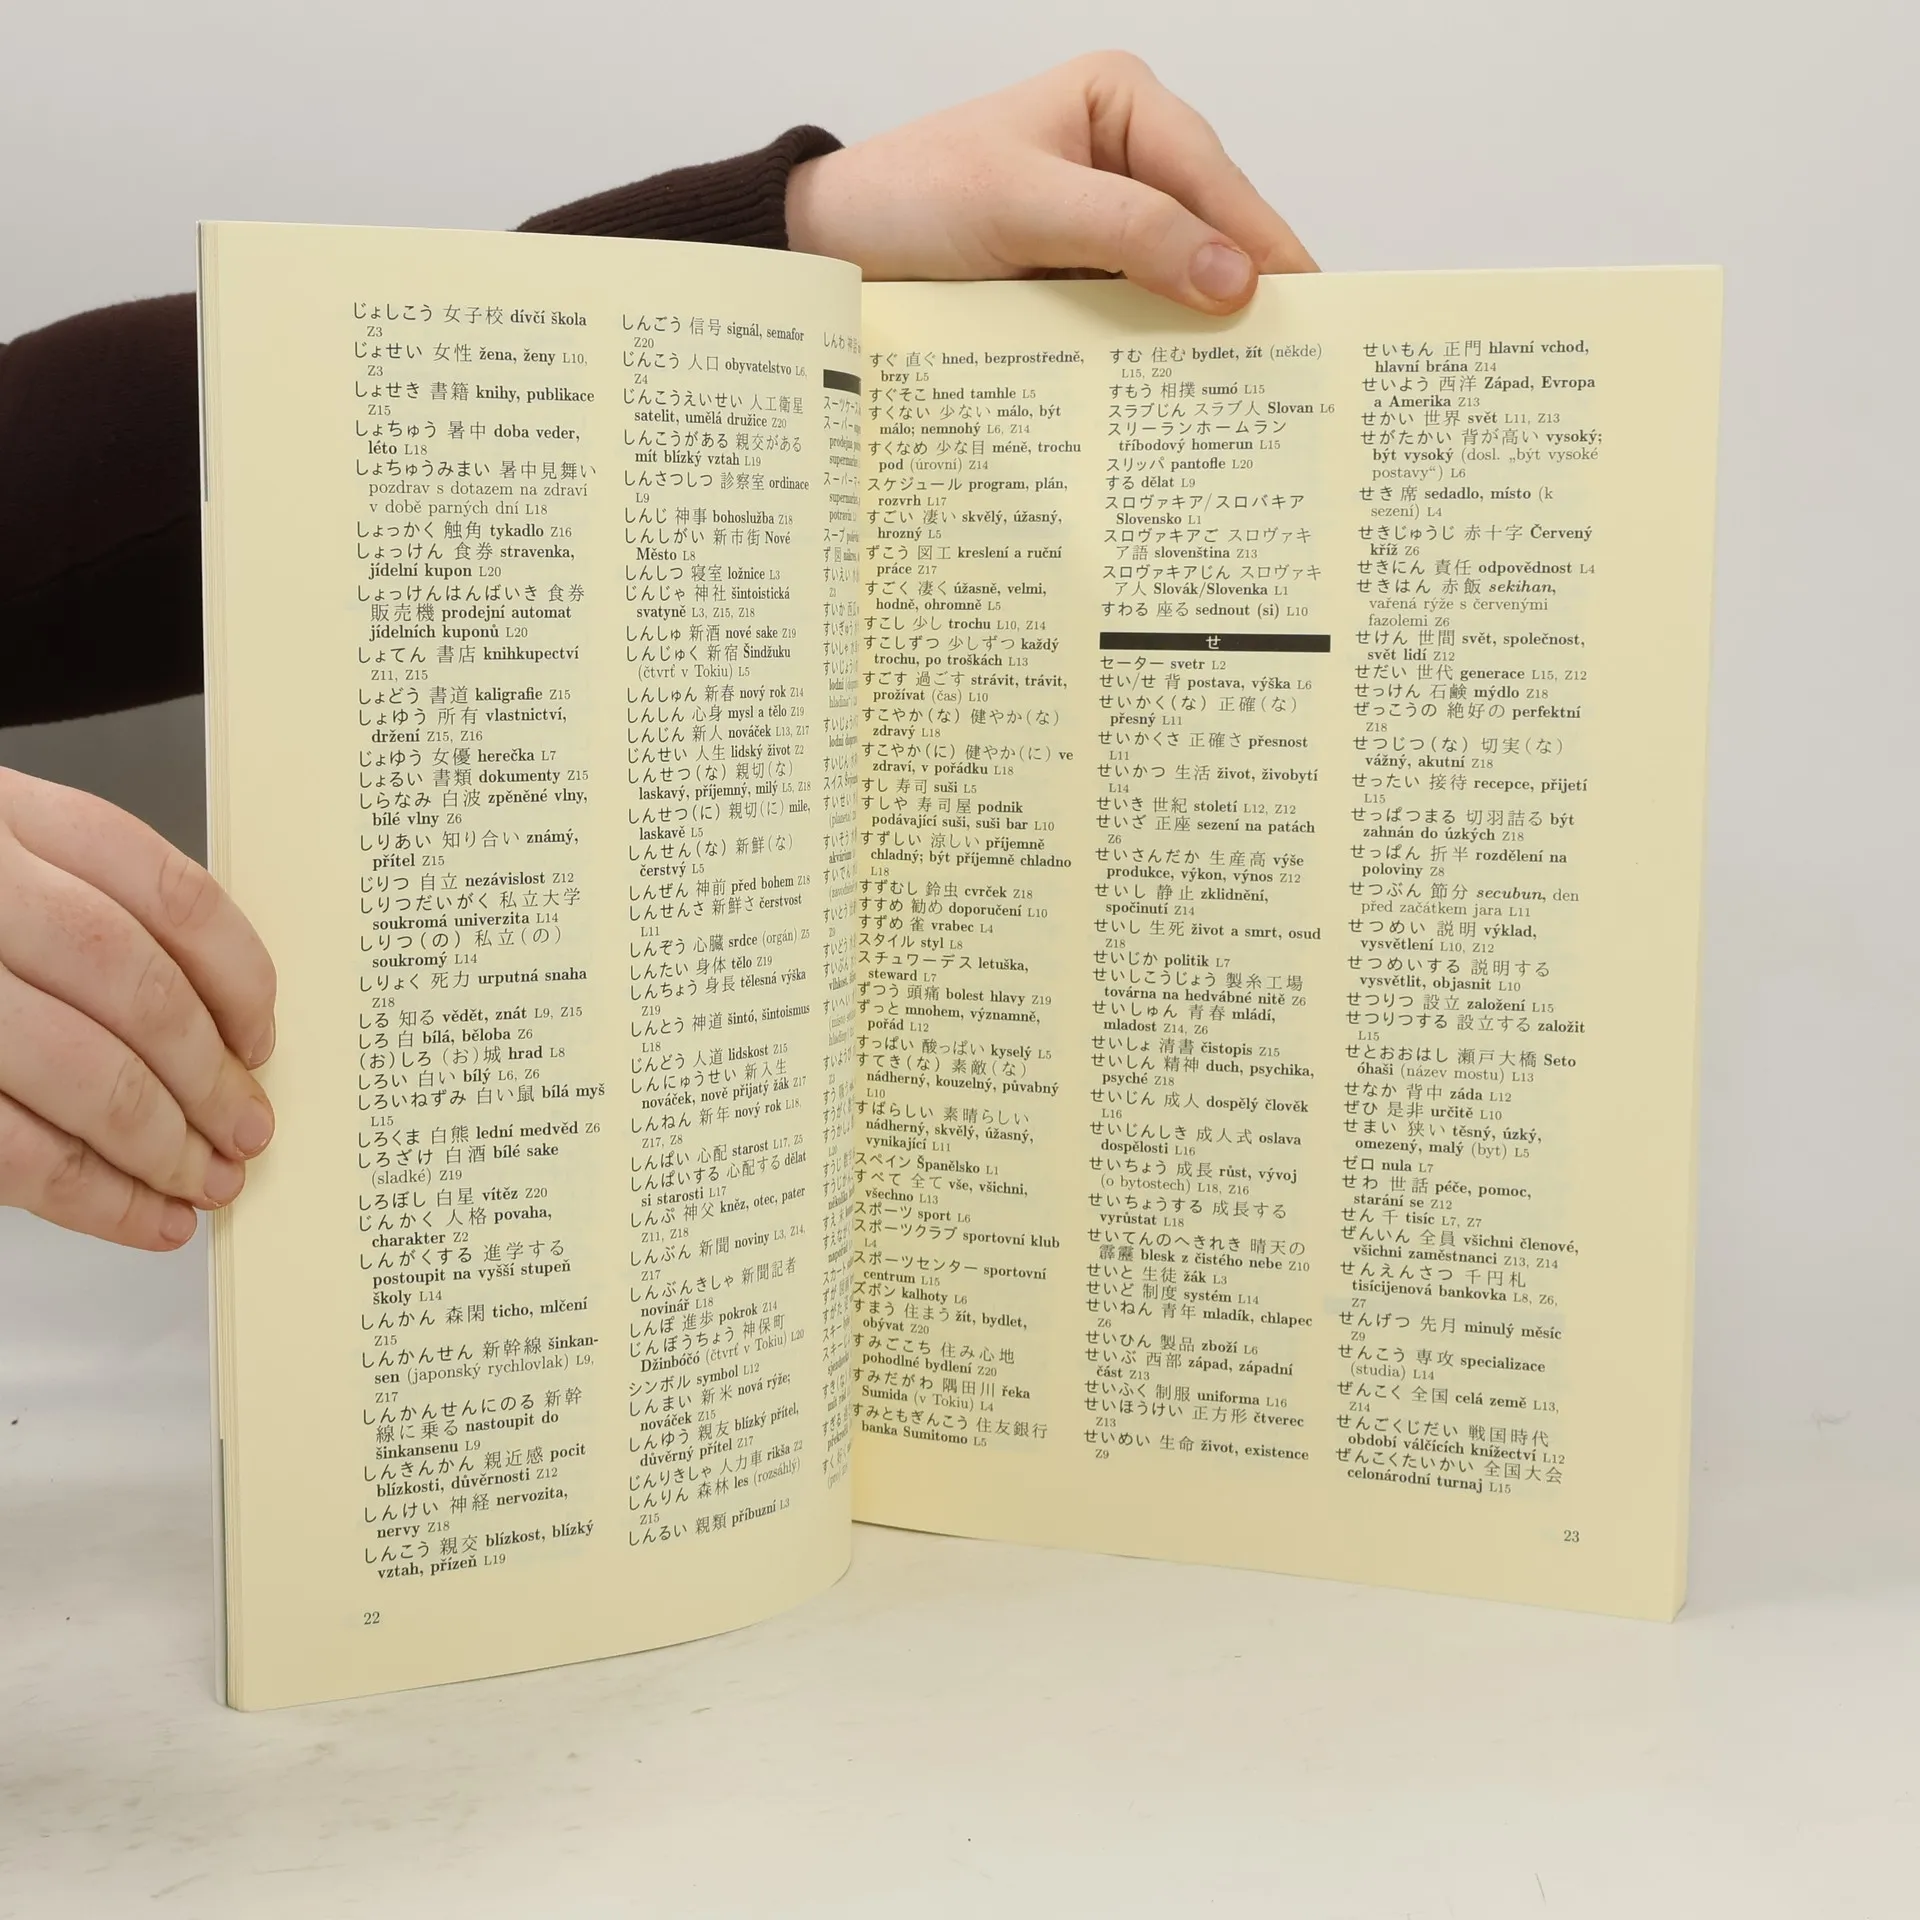 じょしこう 女子校 dívčí škola
Z3
じょせい 女性 žena, ženy L10,
Z3
しょせき 書籍 knihy, publikace
Z15
しょちゅう 暑中 doba veder,
léto L18
しょちゅうみまい 暑中見舞い
pozdrav s dotazem na zdraví
v době parných dní L18
しょっかく 触角 tykadlo Z16
しょっけん 食券 stravenka,
jídelní kupon L20
しょっけんはんばいき 食券
販売機 prodejní automat
jídelních kuponů L20
しょてん 書店 knihkupectví
Z11, Z15
しょどう 書道 kaligrafie Z15
しょゆう 所有 vlastnictví,
držení Z15, Z16
じょゆう 女優 herečka L7
しょるい 書類 dokumenty Z15
しらなみ 白波 zpěněné vlny,
bílé vlny Z6
しりあい 知り合い známý,
přítel Z15
じりつ 自立 nezávislost Z12
しりつだいがく 私立大学
soukromá univerzita L14
しりつ(の) 私立(の)
soukromý L14
しりょく 死力 urputná snaha
Z18
しる 知る vědět, znát L9, Z15
しろ 白 bílá, běloba Z6
(お)しろ (お)城 hrad L8
しろい 白い bílý L6, Z6
しろいねずみ 白い鼠 bílá myš
L15
しろくま 白熊 lední medvěd Z6
しろざけ 白酒 bílé sake
(sladké) Z19
しろぼし 白星 vítěz Z20
じんかく 人格 povaha,
charakter Z2
しんがくする 進学する
postoupit na vyšší stupeň
školy L14
しんかん 森閑 ticho, mlčení
Z15
しんかんせん 新幹線 šinkan-
sen (japonský rychlovlak) L9,
Z17
しんかんせんにのる 新幹
線に乗る nastoupit do
šinkansenu L9
しんきんかん 親近感 pocit
blízkosti, důvěrnosti Z12
しんけい 神経 nervozita,
nervy Z18
しんこう 親交 blízkost, blízký
vztah, přízeň L19
22
しんごう 信号 signál, semafor
Z20
じんこう 人口 obyvatelstvo L6,
Z4
じんこうえいせい 人工衛星
satelit, umělá družice Z20
しんこうがある 親交がある
mít blízký vztah L19
しんさつしつ 診察室 ordinace
L9
しんじ 神事 bohoslužba Z18
しんしがい 新市街 Nové
Město L8
しんしつ 寝室 ložnice L3
じんじゃ 神社 šintoistická
svatyně L3, Z15, Z18
しんしゅ 新酒 nové sake Z19
しんじゅく 新宿 Šindžuku
(čtvrť v Tokiu) L5
しんしゅん 新春 nový rok Z14
しんしん 心身 mysl a tělo Z19
しんじん 新人 nováček L13, Z17
じんせい 人生 lidský život Z2
しんせつ(な) 親切(な)
laskavý, příjemný, milý L5, Z18
しんせつ(に) 親切(に) mile,
laskavě L5
しんせん(な) 新鮮(な)
čerstvý L5
しんぜん 神前 před bohem Z18
しんせんさ 新鮮さ čerstvost
L11
しんぞう 心臓 srdce (orgán) Z5
しんたい 身体 tělo Z19
しんちょう 身長 tělesná výška
Z19
しんとう 神道 šintó, šintoismus
L18
じんどう 人道 lidskost Z15
しんにゅうせい 新入生
nováček, nově přijatý žák Z17
しんねん 新年 nový rok L18,
Z17, Z8
しんぱい 心配 starost L17, Z5
しんぱいする 心配する dělat
si starosti L17
しんぷ 神父 kněz, otec, pater
Z11, Z18
しんぶん 新聞 noviny L3, Z14,
Z17
しんぶんきしゃ 新聞記者
novinář L18
しんぽ 進歩 pokrok Z14
じんぼうちょう 神保町
Džinbóčó (čtvrť v Tokiu) L20
シンボル symbol L12
しんまい 新米 nová rýže;
nováček Z15
しんゆう 親友 blízký přítel,
důvěrný přítel Z17
じんりきしゃ 人力車 rikša Z2
しんりん 森林 les (rozsáhlý)
Z15
しんるい 親類 příbuzní L3
しんわ
すぐ 直ぐ hned, bezprostředně,
brzy L5
すぐそこ hned tamhle L5
すくない 少ない málo, být
málo; nemnohý L6, Z14
すくなめ 少な目 méně, trochu
pod (úrovní) Z14
スケジュール program, plán,
rozvrh L17
すごい 凄い skvělý, úžasný,
hrozný L5
ずこう 図工 kreslení a ruční
práce Z17
すごく 凄く úžasně, velmi,
hodně, ohromně L5
すこし 少し trochu L10, Z14
すこしずつ 少しずつ každý
trochu, po troškách L13
すごす 過ごす strávit, trávit,
prožívat (čas) L10
すこやか(な) 健やか(な)
zdravý L18
すこやか(に) 健やか(に) ve
zdraví, v pořádku L18
すし 寿司 suši L5
すしや 寿司屋 podnik
podávající suši, suši bar L10
すずしい 涼しい příjemně
chladný; být příjemně chladno
L18
すずむし 鈴虫 cvrček Z18
すすめ 勧め doporučení L10
すずめ 雀 vrabec L4
スタイル styl L8
スチュワーデス letuška,
steward L7
ずつう 頭痛 bolest hlavy Z19
ずっと mnohem, významně,
pořád L12
すっぱい 酸っぱい kyselý L5
すてき(な) 素敵(な)
nádherný, kouzelný, půvabný
L10
すばらしい 素晴らしい
nádherný, skvělý, úžasný,
vynikající L11
スペイン Španělsko L1
すべて 全て vše, všichni,
všechno L13
スポーツ sport L6
スポーツクラブ sportovní klub
L4
スポーツセンター sportovní
centrum L15
ズボン kalhoty L6
すまう 住まう žít, bydlet,
obývat Z20
すみごこち 住み心地
pohodlné bydlení Z20
すみだがわ 隅田川 řeka
Sumida (v Tokiu) L4
すみともぎんこう 住友銀行
banka Sumitomo L5
すむ 住む bydlet, žít (někde)
L15, Z20
すもう 相撲 sumó L15
スラブじん スラブ人 Slovan L6
スリーランホームラン
tříbodový homerun L15
スリッパ pantofle L20
する dělat L9
スロヴァキア/スロバキア
Slovensko L1
スロヴァキアご スロヴァキ
ア語 slovenština Z13
スロヴァキアじん スロヴァキ
ア人 Slovák/Slovenka L1
すわる 座る sednout (si) L10
せ
セーター svetr L2
せい/せ 背 postava, výška L6
せいかく(な) 正確(な)
přesný L11
せいかくさ 正確さ přesnost
L11
せいかつ 生活 život, živobytí
L14
せいき 世紀 století L12, Z12
せいざ 正座 sezení na patách
Z6
せいさんだか 生産高 výše
produkce, výkon, výnos Z12
せいし 静止 zklidnění,
spočinutí Z14
せいし 生死 život a smrt, osud
Z18
せいじか politik L7
せいしこうじょう 製糸工場
továrna na hedvábné nitě Z6
せいしゅん 青春 mládí,
mladost Z14, Z6
せいしょ 清書 čistopis Z15
せいしん 精神 duch, psychika,
psyché Z18
せいじん 成人 dospělý člověk
L16
せいじんしき 成人式 oslava
dospělosti L16
せいちょう 成長 růst, vývoj
(o bytostech) L18, Z16
せいちょうする 成長する
vyrůstat L18
せいてんのへきれき 晴天の
霹靂 blesk z čistého nebe Z10
せいと 生徒 žák L3
せいど 制度 systém L14
せいねん 青年 mladík, chlapec
Z6
せいひん 製品 zboží L6
せいぶ 西部 západ, západní
část Z13
せいふく 制服 uniforma L16
せいほうけい 正方形 čtverec
Z13
せいめい 生命 život, existence
Z9
せいもん 正門 hlavní vchod,
hlavní brána Z14
せいよう 西洋 Západ, Evropa
a Amerika Z13
せかい 世界 svět L11, Z13
せがたかい 背が高い vysoký;
být vysoký (dosl. „být vysoké
postavy“) L6
せき 席 sedadlo, místo (k
sezení) L4
せきじゅうじ 赤十字 Červený
kříž Z6
せきにん 責任 odpovědnost L4
せきはん 赤飯 sekihan,
vařená rýže s červenými
fazolemi Z6
せけん 世間 svět, společnost,
svět lidí Z12
せだい 世代 generace L15, Z12
せっけん 石鹸 mýdlo Z18
ぜっこうの 絶好の perfektní
Z18
せつじつ(な) 切実(な)
vážný, akutní Z18
せったい 接待 recepce, přijetí
L15
せっぱつまる 切羽詰る být
zahnán do úzkých Z18
せっぱん 折半 rozdělení na
poloviny Z8
せつぶん 節分 secubun, den
před začátkem jara L11
せつめい 説明 výklad,
vysvětlení L10, Z12
せつめいする 説明する
vysvětlit, objasnit L10
せつりつ 設立 založení L15
せつりつする 設立する založit
L15
せとおおはし 瀬戸大橋 Seto
óhaši (název mostu) L13
せなか 背中 záda L12
ぜひ 是非 určitě L10
せまい 狭い těsný, úzký,
omezený, malý (byt) L5
ゼロ nula L7
せわ 世話 péče, pomoc,
starání se Z12
せん 千 tisíc L7, Z7
ぜんいん 全員 všichni členové,
všichni zaměstnanci Z13, Z14
せんえんさつ 千円札
tisícijenová bankovka L8, Z6,
Z7
せんげつ 先月 minulý měsíc
Z9
せんこう 専攻 specializace
(studia) L14
ぜんこく 全国 celá země L13,
Z14
せんごくじだい 戦国時代
období válčících knížectví L12
ぜんこくたいかい 全国大会
celonárodní turnaj L15
23